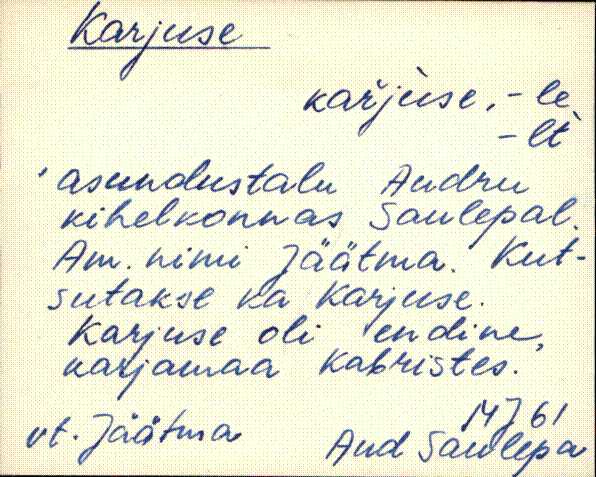 Karjuse
kařjùse, -le
-lt
'asundustalu Audru
kihelkonnas Saulepal.
Am. nimi Jäätma. Kut-
sutakse ka Karjuse.
Karjuse oli endine
karjamaa Kabristes.'
vt. Jäätma
Aud Saulepa